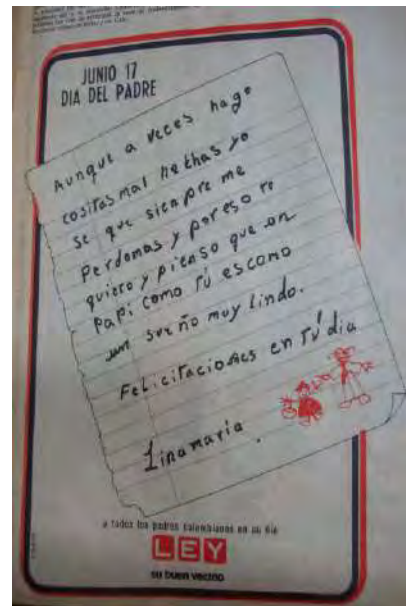 JUNIO 17
DIA DEL PADRE
Aunque a veces hago
cositas mal hechas yo
se que siempre me
perdonas y por eso te
quiero y pienso que un
papi como tú es como
un sueño muy lindo.
Felicitaciones en tú dia
Linamaria.
a todos los padres colombianos en su día
LEY
su buen vecino